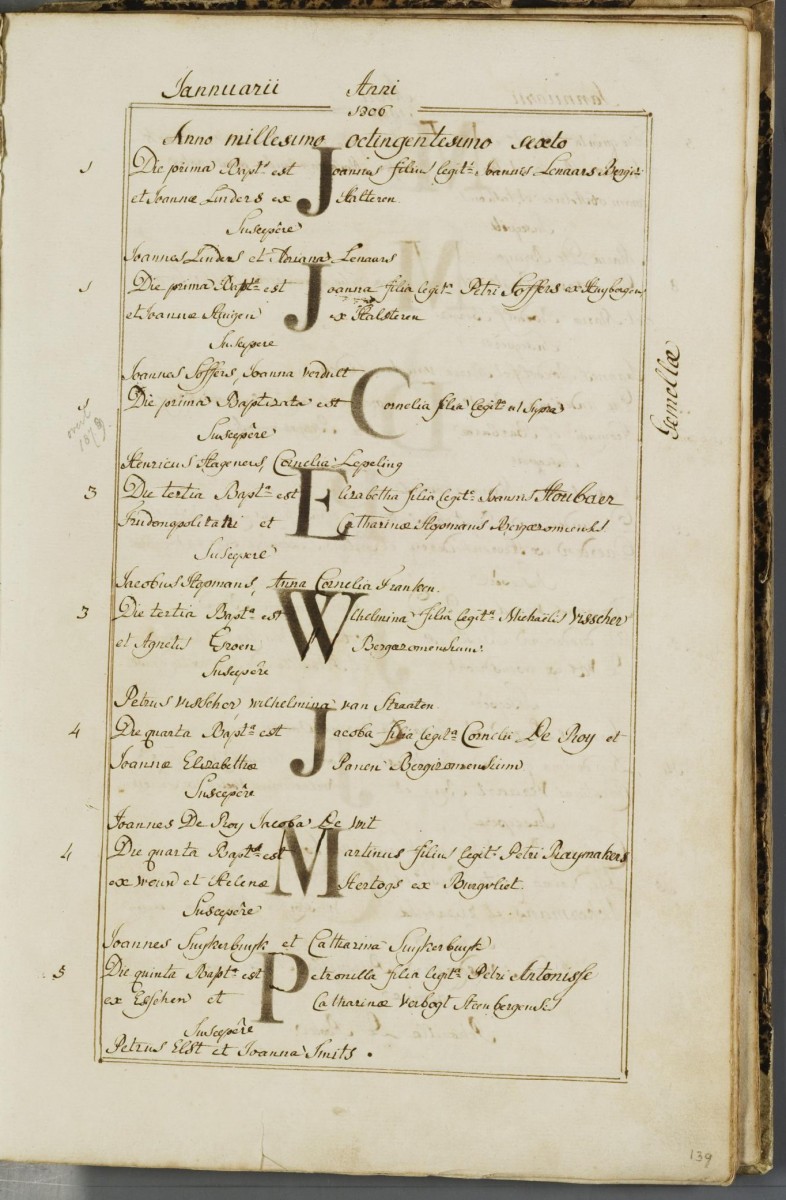 Iannuarii Anni
1806
Anno millesimo octingentesimo sexto
1 Die prima Bapts est Joannes filius legits Joannis Lenaars Bergis
et Joannæ Linders ex Halteren
Suscepêre
Joannes Linders et Adriana Lenaars
1 Die prima Bapta est Joanna filia legita Petri Soffers ex Huybergen
et Joannæ Huijgen ex Halsteren
Suscepere
Joannes Soffers, Joanna Verdult
1 Die prima Baptizata est Cornelia filia legita ut supra
Gemellæ
Suscepêre
Henricus Hageners, Cornelia Lepeling
3 Die tertia Bapta est Elizabetha filia legita Joannis Houbaer
Trudonopolitani et Catharinæ Hopmans Bergæzomensis
Suscepere
Jacobus Hopmans, Anna Cornelia Franken.
3 Die tertia Bapta est Wilhelmina filia legita Michaëlis Visscher
et Agnetis Groen Bergæzomensium
Suscepêre
Petrus Visscher, Wilhelmina van Straaten
4 Die quarta Bapta est Jacoba filia legita Cornelii De Roy et
Joannæ Elizabethæ Panen Bergizomensium
Suscepêre
Joannes De Roy Jacoba De Wit
4 Die quarta Bapts est Martinus filius legits Petri Raymakers
ex Wouw et Helenæ Hertogs ex Burgvliet.
Suscepêre
Joannes Suykerbuyk et Catharina Suykerbuyk
5 Die quinta Bapta est Petronilla filia legita Petri Antonisse
ex Esschen et Catharinæ Verbogt Steenbergensis
Suscepêre
Petrus Elst et Joanna Smits.
139